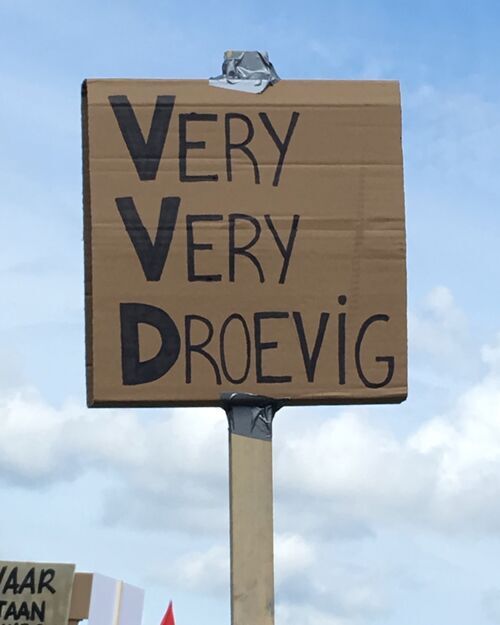 VERY
VERY
DROEViG
TAAN